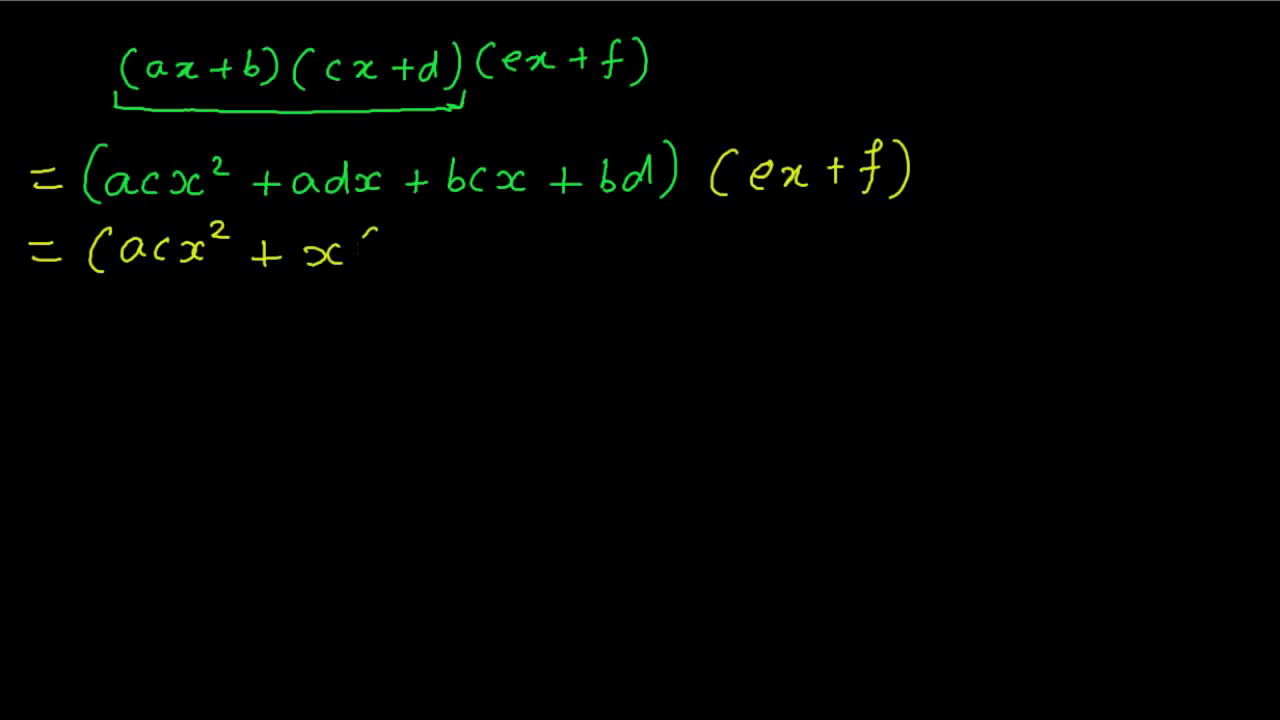 (ax+b)(cx+d)(ex+f)
= (acx² + adx + bcx + bd) (ex + f)
= (acx² + x